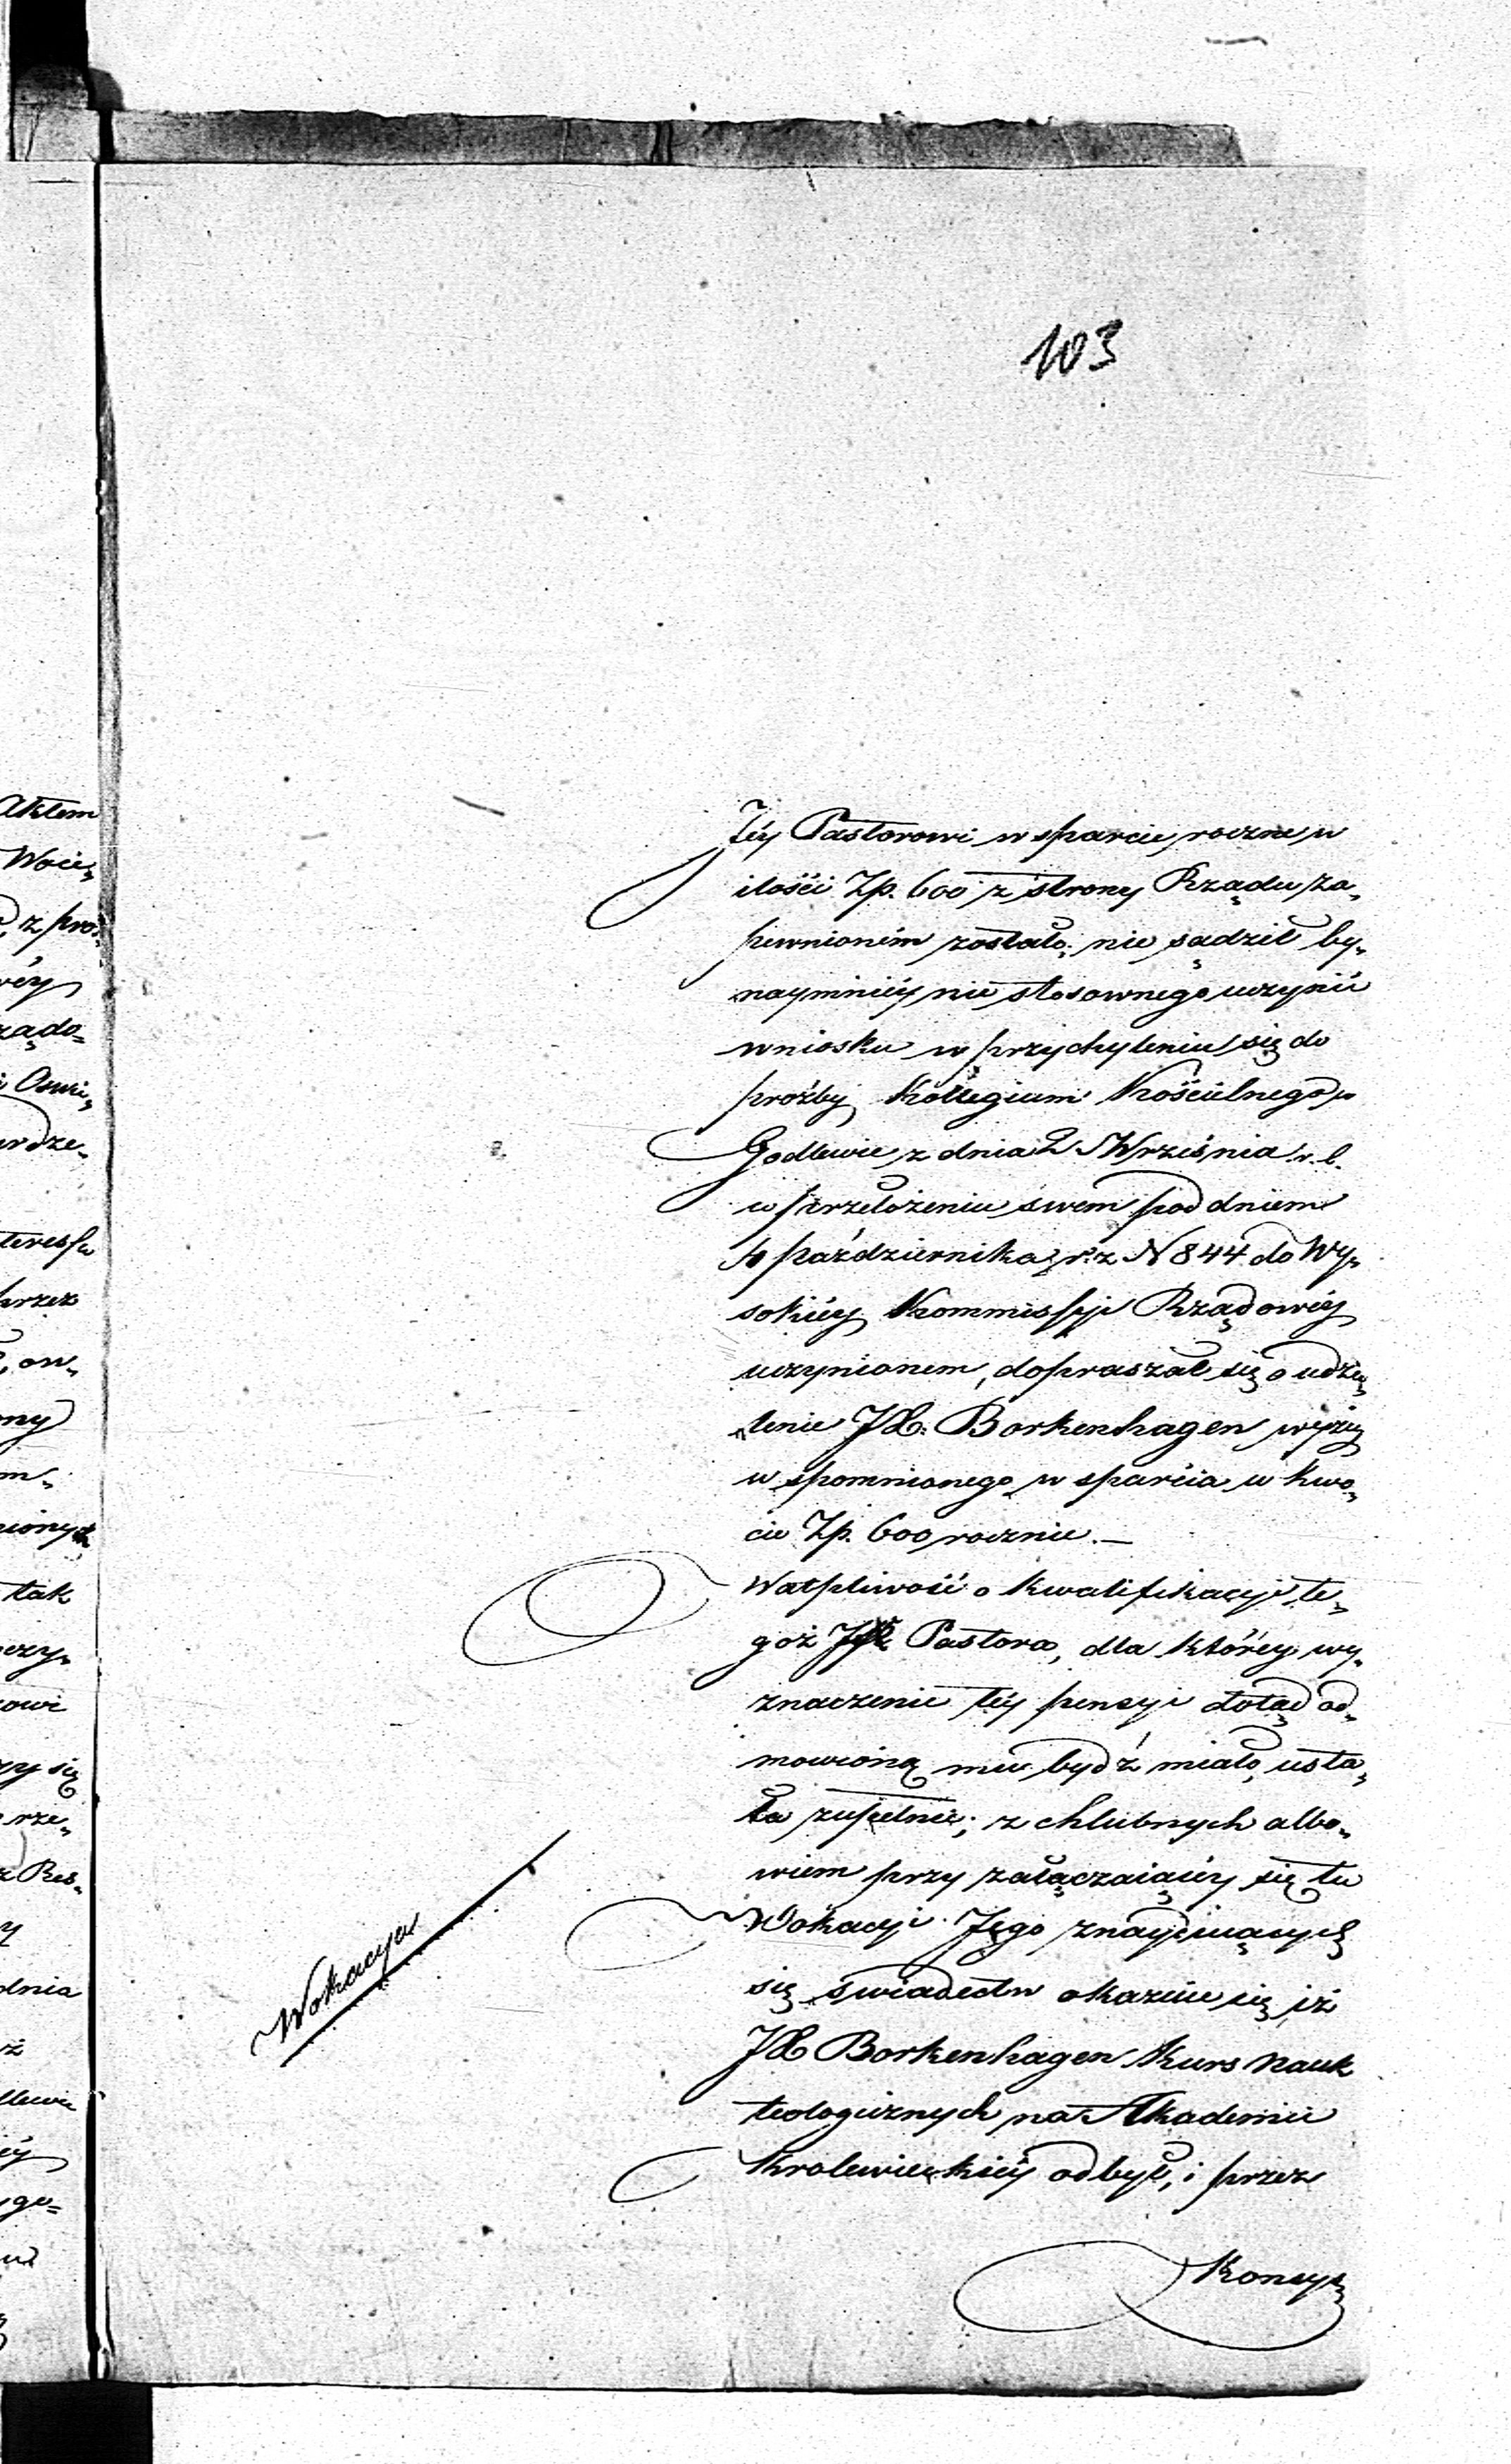 103
Aktem
Woie„
z pro„
zado=
rdze„
teressu
przez
ow„
ny
tak
czy„
owi
się
rze„
Res„
dnia
Jéy Pastorowi wsparcie roczne w
ilości Zp. 600 z strony Rządu za„
pewnioném zostało; nie sądził by„
naymniéy nie stosownego uczynić
wniosku w przychyleniu się do
proźby Kollegium Kościelnego w
Godlewie z dnia 2 Września r. b.
w przełożeniu swem pod dniem
10 października r. z N 844 do Wy„
sokiéy Kommissyi Rządowéy
uczynionem, dopraszał się o udzie„
„lenie JX: Borkenhagen wyżéy
wspomnionego wsparcia w kwo„
cie Zp. 600 rocznie. —
Watpliwość o kwalifikacyi te„
goż JX Pastora, dla któréy wy„
znaczenie téy pensyi dotąd od„
mowioną mu bydź miało, usta„
ła zupełnie; z chlubnych albo„
wiem przy załączaiącéy się tu
Wokacyi Jego znayduiących
się swiadectw okazuie się iż
JX Borkenhagen kurs nauk
teologicznych na Akademii
Krolewieckiéy odbył, i przez
Wokacya
Konsys„